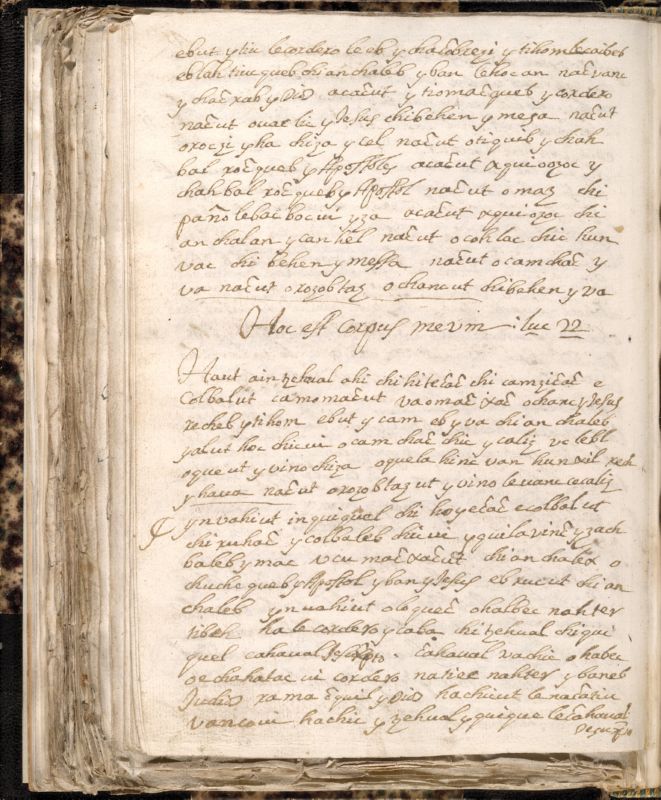 ebut ytiu lecordero le eb y chacobrezi y tihom lecaibeb
eblah tiucqueb chi an chaleb y ban lehoc an nac vanc
y chac rab y Dios acacut y tiomacqueb y cordero
nacut ouar lic y Jesus chibehen y mesa nacut
orozi y ha chiza y cel nacut otiquib y chah
bal rocqueb y Apostoles acacut xquiozoc y
chahbal rocqueb y Apostol nacut omaz chi
paño lebac bocui yza acacut xquiozoc chi
an chalan y canhel nacut ocohlac chic hun
vac chi behen y messa nacut ocamchac y
va nacut orozobtaz ochancut chibehen y va
Hoc est corpus meum : luc 22
Haut ain tzehual ahi chihitecac chi camzicac e
Colbalut camomacut va omac ixac ochanc y Jesus
recheb y tihom ebut y cam eb y va chi an chaleb
yalut hoc chicui ocam chac chic y caliz ve lebl
oque ut y vino chiza oquela hinc van hun xil reh
y hava nacut orozobtaz ut y vino levanc cecaliz
ynvahiut inquiquel chi hoyecac ecolbalut
chi ruhac y colbaleb chicui yquilavinc y zach
baleb y mac vcu macxacut chi an chaleb o
chuchequeb y Apostol y ban y Jesus eb rucut chi an
chaleb ynvahiut oloquec ohalbec nahter
ribeh ha le cordero y caba chi tzehual chi qui
quel cahaual Jesuxpto. Cahaual vachic ohabec
oechahalac ui cordero natiec nahter y baneb
Judio rama cquil y Dios hachicut le nacatiu
vancoui hachic y tzehual y quique lecahaual
Jesuxpo